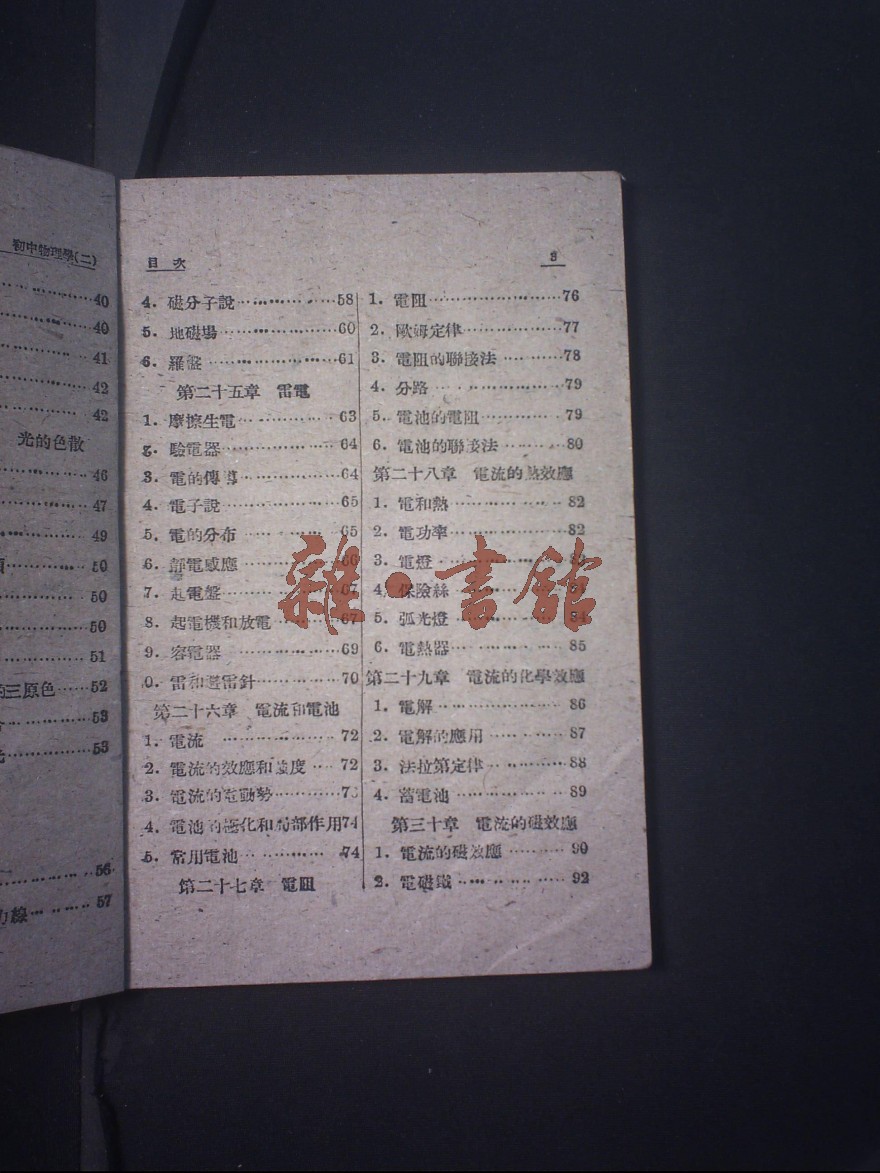 初中物理學(二)
40
40
41
42
42
光的色散
46
47
49
50
50
50
51
三原色……52
53
53
56
力線………57
目次
3
4. 磁分子說………58
5. 地磁場………60
6. 羅盤………61
第二十五章 雷電
1. 摩擦生電………63
2. 驗電器………64
3. 電的傳導………64
4. 電子說………65
5. 電的分布………65
6. 靜電感應………66
7. 起電盤………67
8. 起電機和放電………67
9. 容電器………69
0. 雷和避雷針………70
第二十六章 電流和電池
1. 電流………72
2. 電流的效應和強度………72
3. 電流的電動勢………7
4. 電池的極化和局部作用74
5. 常用電池………74
第二十七章 電阻
1. 電阻………76
2. 歐姆定律………77
3. 電阻的聯接法………78
4. 分路………79
5. 電池的電阻………79
6. 電池的聯接法………80
第二十八章 電流的熱效應
1. 電和熱………82
2. 電功率………82
3. 電燈………
4. 保險絲………
5. 弧光燈………84
6. 電熱器………85
第二十九章 電流的化學效應
1. 電解………86
2. 電解的應用………87
3. 法拉第定律………88
4. 蓄電池………89
第三十章 電流的磁效應
1. 電流的磁效應………90
2. 電磁鐵………92
雜·書館